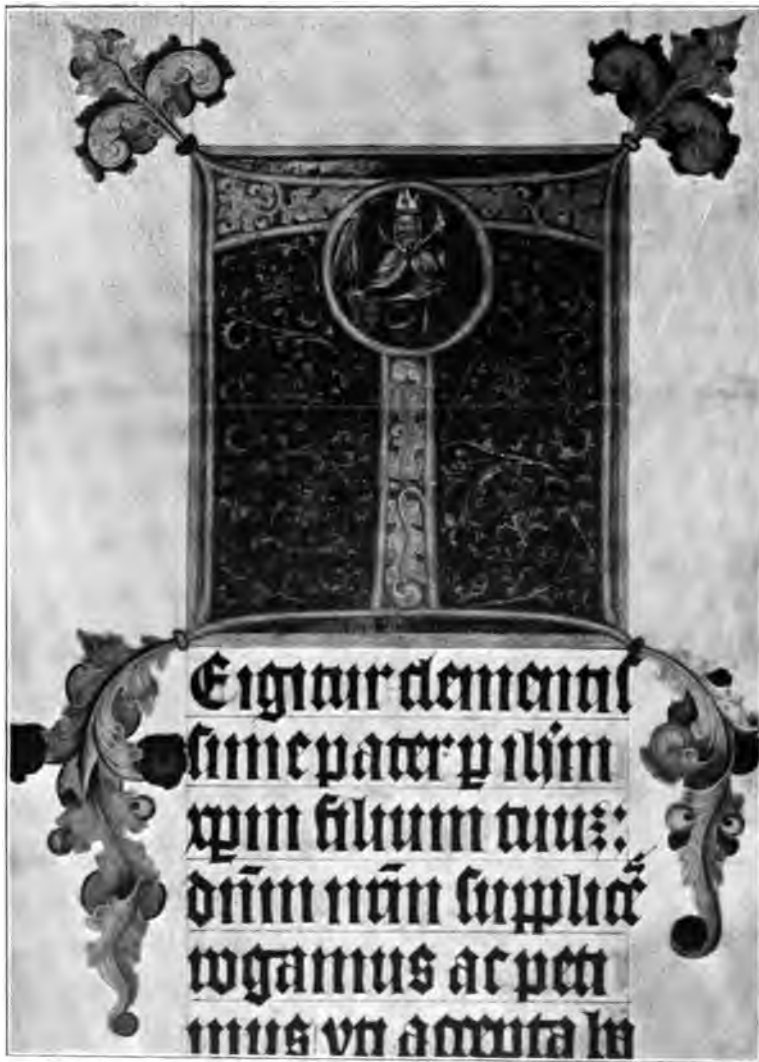 T
Eigitur clementis
sime pater p̲ ih̄m
xp̄m filium tuuꝫ:
dn̄m nr̄m supplicẽ
rogamus ac peti
mus vti accepta ha